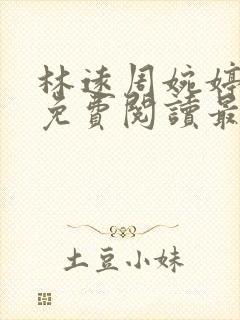 林遠周婉婷
免費閱讀最
土豆小妹